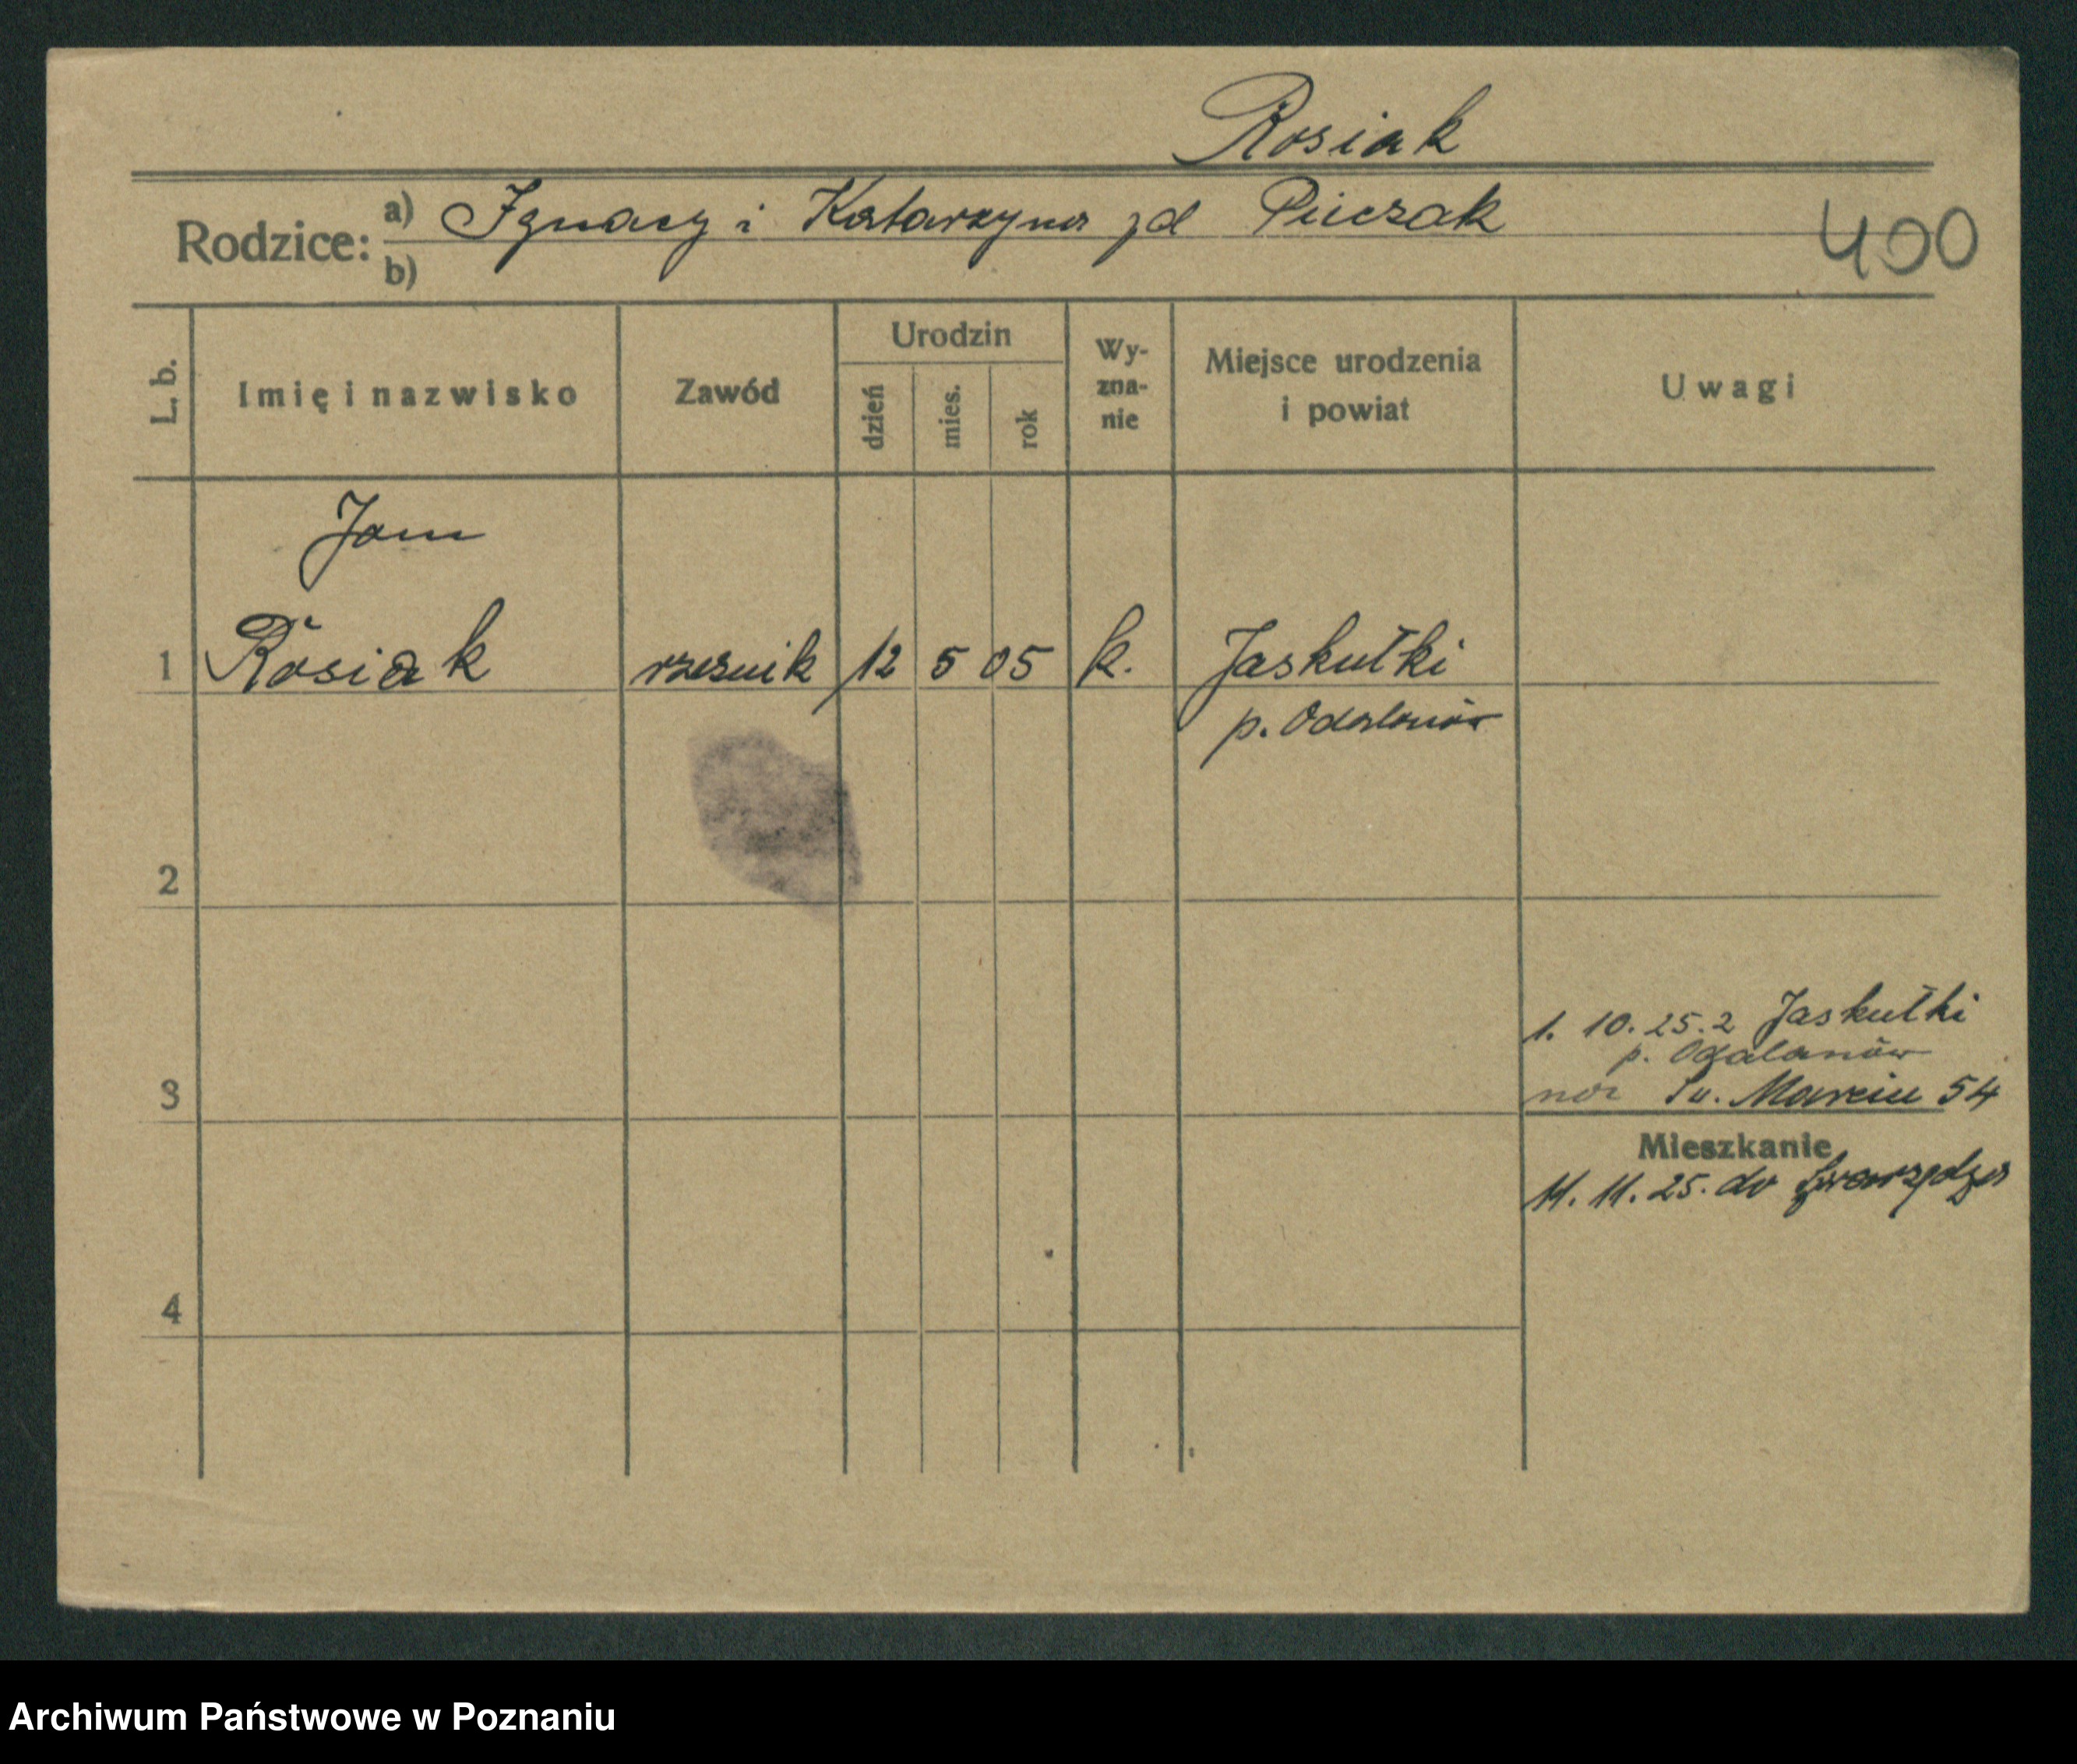 Rosiak
Rodzice: a) Ignacy i Katarzyna zd
b)
400
L. b.
Imię i nazwisko
Zawód
Urodzin
dzień
mies.
rok
Wy-
zna-
nie
Miejsce urodzenia
i powiat
Uwagi
Jan
1 Rosiak rzeźnik 12 5 05 k. Jaskułki
p. Odolanów
2
1. 10. 25. z Jaskułki
p. Odalanów
na Św. Marcin 54
3
Mieszkanie
11. 11. 25. do Swarzędza
4
Archiwum Państwowe w Poznaniu